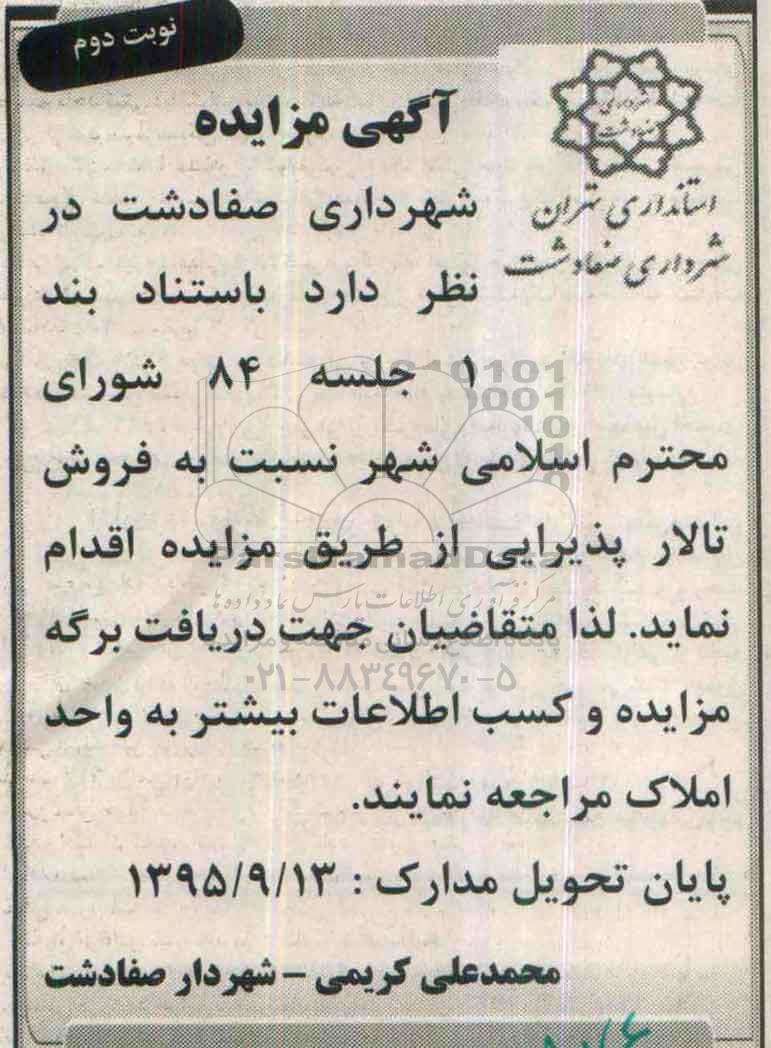 نوبت دوم
شهرداری
صفادشت
استانداری تهران
شهرداری صفادشت
آگهی مزایده
شهرداری صفادشت در
نظر دارد باستناد بند
۱ جلسه ۸۴ شورای
محترم اسلامی شهر نسبت به فروش
تالار پذیرایی از طریق مزایده اقدام
نماید. لذا متقاضیان جهت دریافت برگه
مزایده و کسب اطلاعات بیشتر به واحد
املاک مراجعه نمایند.
پایان تحویل مدارک : ۱۳۹۵/۹/۱۳
محمدعلی کریمی – شهردار صفادشت
مرکز فرآوری اطلاعات پارس نماد داده ها
۰۲۱-۸۸۳۴۹۶۷۰-۵